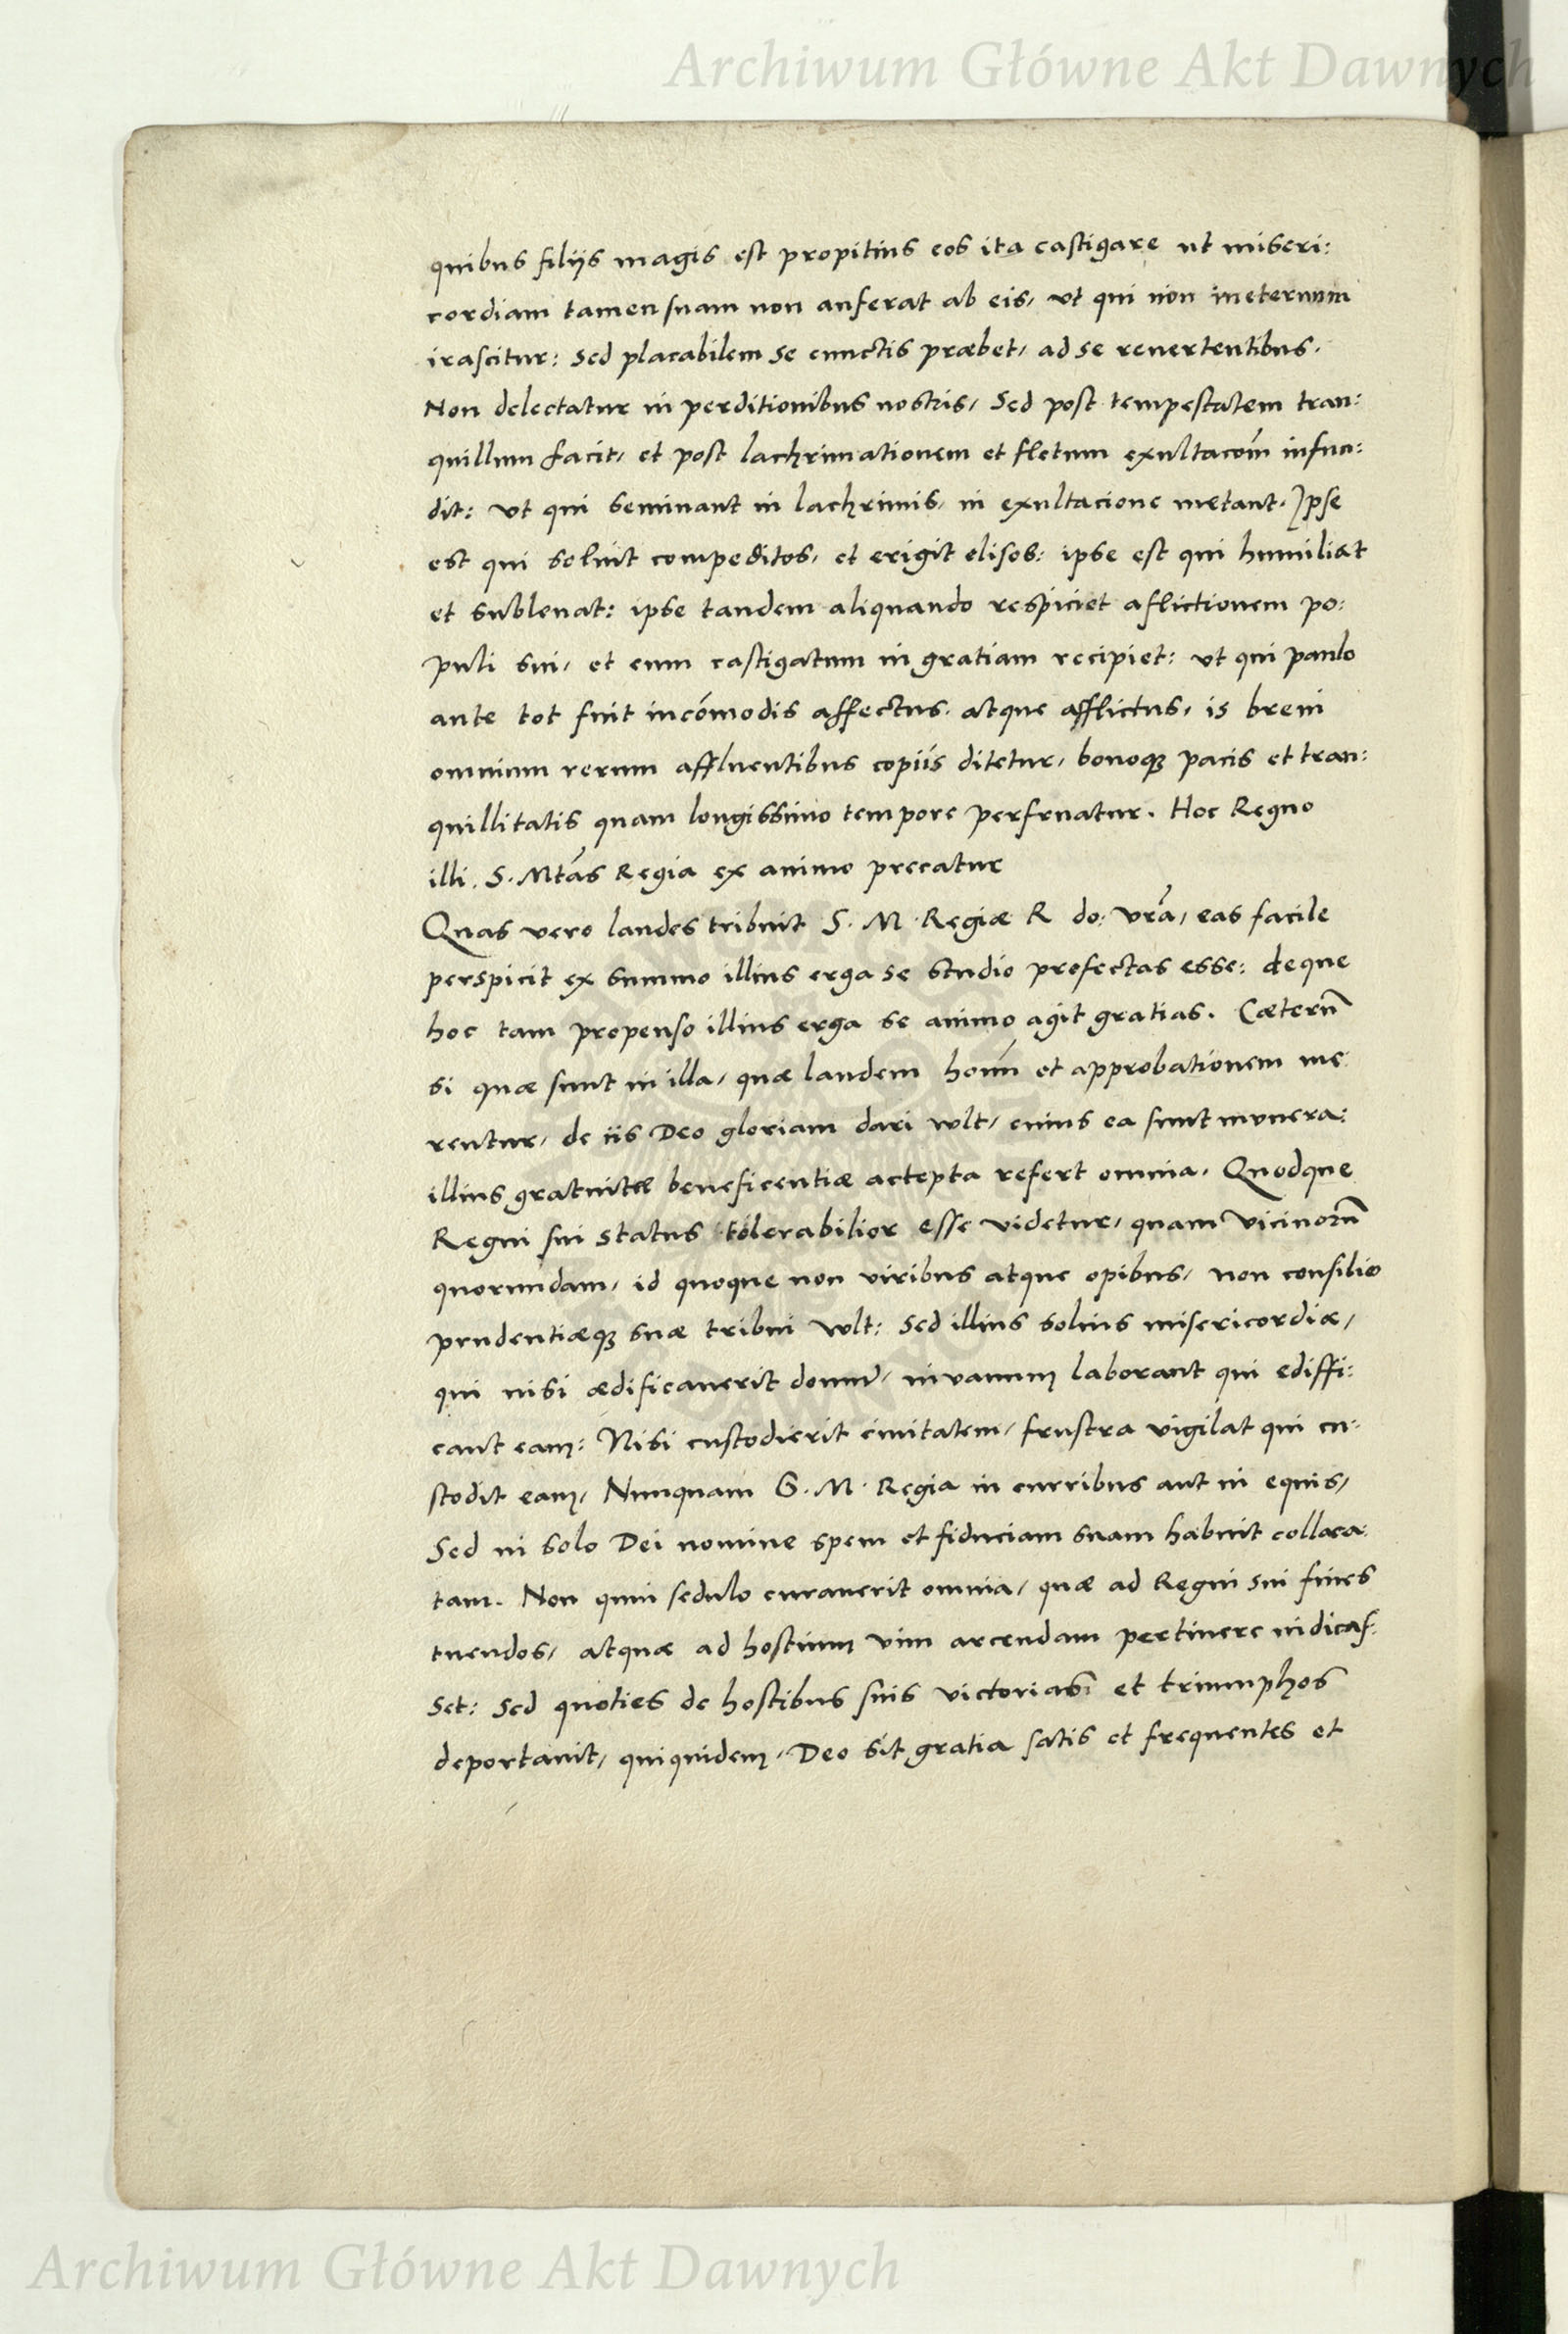 Archiwum Główne Akt Dawnych
quibus filijs magis est propitius eos ita castigare ut miseri:
cordiam tamen suam non auferat ab eis, ut qui non ineternum
irascitur: sed placabilem se cunctis præbet, ad se reuertentibus.
Non delectatur in perditionibus nostris, Sed post tempestatem tran:
quillum facit, et post lachrimationem et fletum exultacōm infun:
dit: ut qui seminant in lachrimis, in exultacione metant. Ipse
est qui soluit compeditos, et erigit elisos: ipse est qui humiliat
et subleuat: ipse tandem aliquando respiciet aflictionem po:
puli sui, et eum castigatum in gratiam recipiet: ut qui paulo
ante tot fuit incōmodis affectus, atque afflictus, is breui
omnium rerum affluentibus copiis ditetur, bonoqꝫ pacis et tran:
quillitatis quam longissimo tempore perfruatur. Hoc Regno
illi. S. Mtās Regia ex animo precatur
Quas vero laudes tribuit S. M. Regiæ R do: vrā, eas facile
perspicit ex summo illius erga se studio profectas esse: deque
hoc tam propenso illius erga se animo agit gratias. Cæterū
si quæ sunt in illa, quæ laudem homīm et approbationem me
rentur, de iis Deo gloriam dari wlt, cuius ea sunt munera:
illius gratuitæ beneficentiæ accepta refert omnia. Quodque
Regni sui status tolerabilior esse videtur, quam vicinorū
quorundam, id quoque non viribus atque opibus, non consilio
prudentiæqꝫ suæ tribui wlt: Sed illius solius misericordiæ,
qui nisi ædificauerit domū, in vanum laborant qui ediffi:
cant eam: Nisi custodierit ciuitatem, frustra vigilat qui cu:
stodit eam, Nunquam S. M. Regia in curribus aut in equis,
Sed in solo Dei nomine spem et fiduciam suam habuit colloca:
tam. Non quin sedulo curauerit omnia, quæ ad Regni sui fines
tuendos, atquæ ad hostium vim arcendam pertinere iudicas:
set: Sed quoties de hostibus suis victorias et triumphos
deportauit, quiquidem, Deo sit gratia satis et frequentes et
Archiwum Główne Akt Dawnych